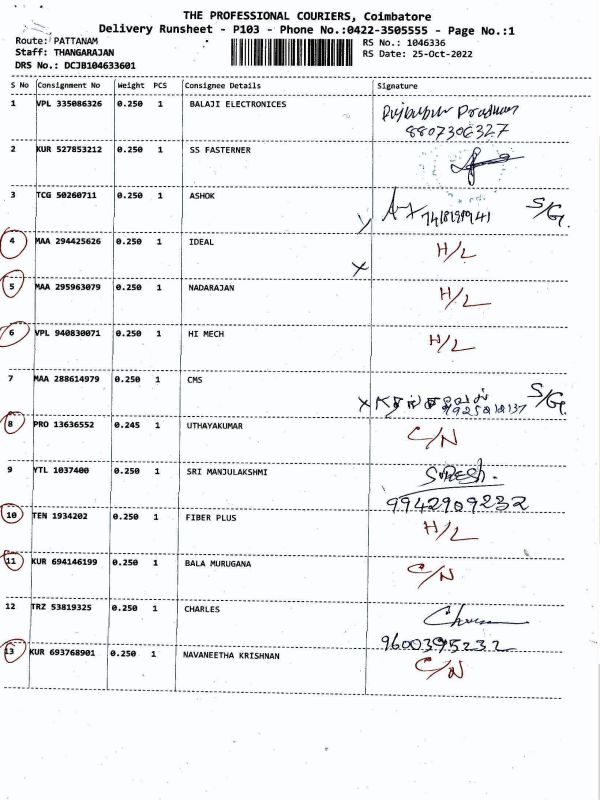 THE PROFESSIONAL COURIERS, Coimbatore
Delivery Runsheet - P103 - Phone No.:0422-3505555 - Page No.:1
Route: PATTANAM
RS No.: 1046336
Staff: THANGARAJAN
RS Date: 25-Oct-2022
DRS No.: DCJB104633601
S No Consignment No Weight PCS Consignee Details Signature
1 VPL 335086326 0.250 1 BALAJI ELECTRONICES
8807306327
2 KUR 527853212 0.250 1 SS FASTERNER
3 TCG 50260711 0.250 1 ASHOK S/G.
4 MAA 294425626 0.250 1 IDEAL H/L
5 MAA 295963079 0.250 1 NADARAJAN H/L
6 VPL 940830071 0.250 1 HI MECH H/L
7 MAA 288614979 0.250 1 CMS S/G.
8 PRO 13636552 0.245 1 UTHAYAKUMAR C/N
9 YTL 1037400 0.250 1 SRI MANJULAKSHMI SURESH.
9942909232
10 TEN 1934202 0.250 1 FIBER PLUS H/L
11 KUR 694146199 0.250 1 BALA MURUGANA C/N
12 TRZ 53819325 0.250 1 CHARLES
9600395232
13 KUR 693768901 0.250 1 NAVANEETHA KRISHNAN C/N